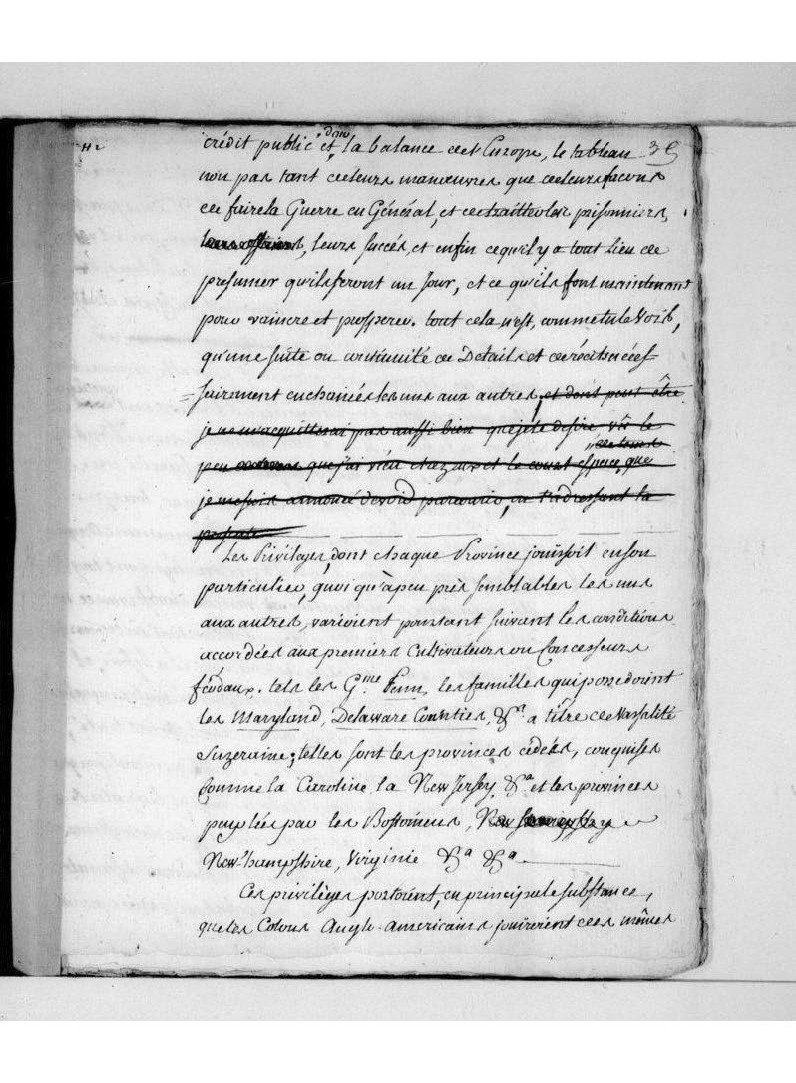 H2
39
dans
crédit public et, la balance de l'Europe, le tableau
non pas tant de leurs manœuvres que de leurs façons
de faire la Guerre en Général, et de traitter les prisonniers,
leurs succés, et enfin ce qu'il y a tout Lieu de
presumer qu'ils feront un Jour, et ce qu'ils font maintenant
pour vaincre et prosperer. tout cela n'est, comme tu le Vois,
qu'une suite ou continuité de Details et de récits néces-
=sairement enchainés les uns aux autres, et dont peut être
je ne m'acquitterai pas aussi bien que je le desire vû le
de tems
peu que j'ai vécu chez eux et le court espace, que
je me suis annoncé d'avoir parcouru, en t'adressant la
presente
Les Privileges, dont chaque Province jouissoit en son
particulier, quoi qu'à peu près semblables les uns
aux autres, varioient pourtant suivant les conditions
accordées aux premiers Cultivateurs ou Concesseurs
féodaux. tels les G.me Penn, les familles qui possedoient
les Maryland, Delaware Counties, &a. a titre de Vassalité
Suzeraine; telles sont les provinces cédées, conquises
comme la Caroline, la New Jersey, &a. et les provinces
peuplées par les Bostoniens, New Jersey
New-hampshire, Virginie &a &a
Ces privilèges portoient, en principale substance,
que les Colons Anglo-americains jouiroient des mêmes